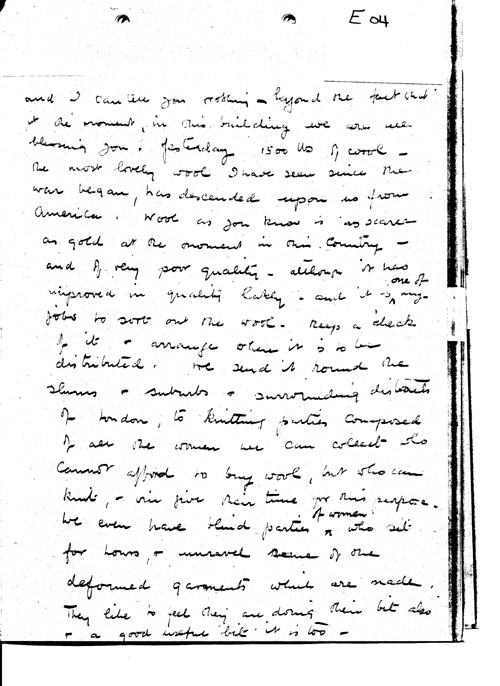 E 04
and I can tell you nothing - beyond the fact that
at the moment, in this building we are all
blessing you. Yesterday 1500 lbs of wool -
the most lovely wool I have seen since the
war began, has descended upon us from
America. Wool as you know is as scarce
as gold at the moment in this Country -
and of very poor quality - although it has
improved in quality lately - and it is one of my
jobs to sort out the wool. Keep a check
of it & arrange where it is to be
distributed. We send it round the
slums & suburbs & surrounding districts
of London, to knitting parties composed
of all the women we can collect who
cannot afford to buy wool, but who can
knit, & will give their time for this purpose.
We even have blind parties of women who sit
for hours, & unravel some of the
deformed garments which are made.
They like to feel they are doing their bit also
& a good useful 'bit' it is too -